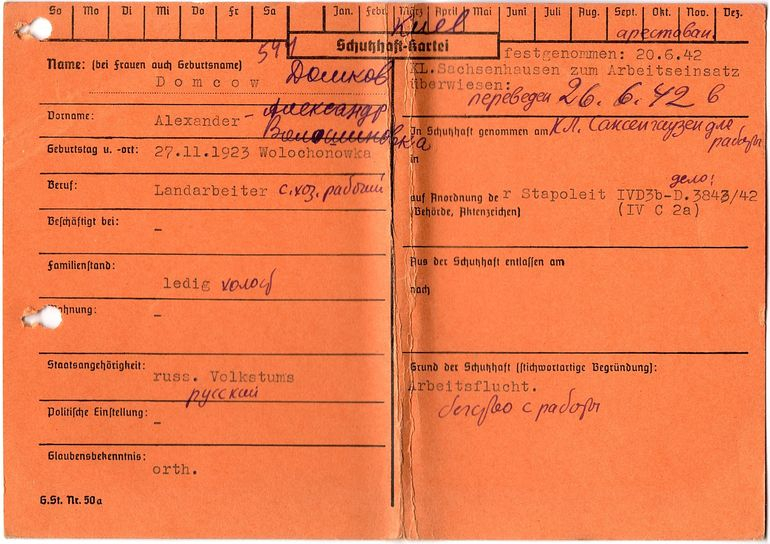 So Mo Di Mi Do Fr Sa Jan. Febr. März April Mai Juni Juli Aug. Sept. Okt. Nov. Dez.
Киев
арестован
541
Schutzhaft-Kartei
Name: (bei Frauen auch Geburtsname)
Domcow Домков
Vorname: Alexander - Александр
Geburtstag u. -ort: 27.11.1923 Wolochonowka
Beruf: Landarbeiter с.хоз. рабочий
Beschäftigt bei: -
Familienstand:
ledig холост
-
Staatsangehörigkeit:
russ. Volkstums
русский
Politische Einstellung: -
Glaubensbekenntnis:
orth.
G.St. Nr. 50a
festgenommen: 20.6.42
KL.Sachsenhausen zum Arbeitseinsatz
überwiesen:
переведен 26.6.42 в
In Schutzhaft genommen am КЛ. Саксенгаузен для
работы
in
дело:
auf Anordnung de r Stapoleit IVD3b-D.3843/42
(Behörde, Aktenzeichen) (IV C 2a)
Aus der Schutzhaft entlassen am
nach
Grund der Schutzhaft (stichwortartige Begründung):
Arbeitsflucht.
бегство с работы